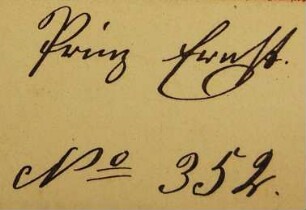 Prinz Ernst.
No 352.